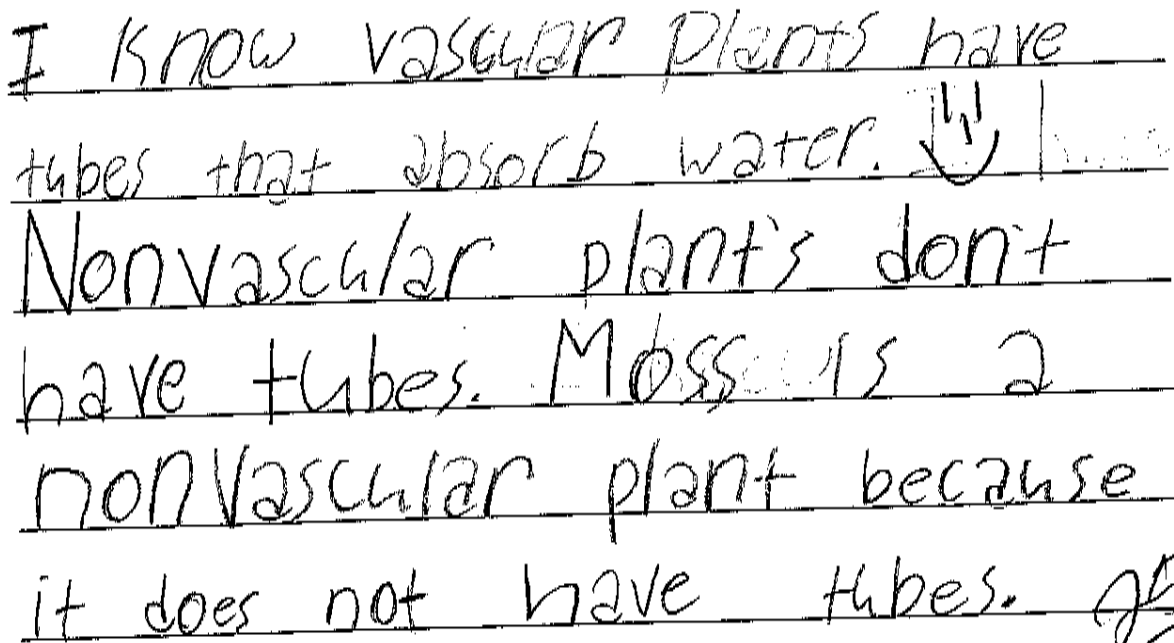 I know vascular plants have
tubes that absorb water.
Nonvascular plant's don't
have tubes. Moss is a
nonvascular plant because
it does not have tubes.